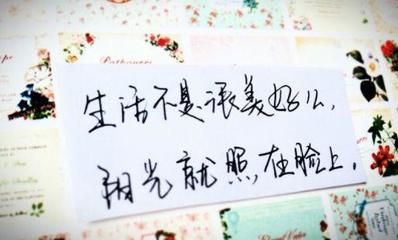 生活不是很美好么，
阳光就照在脸上.